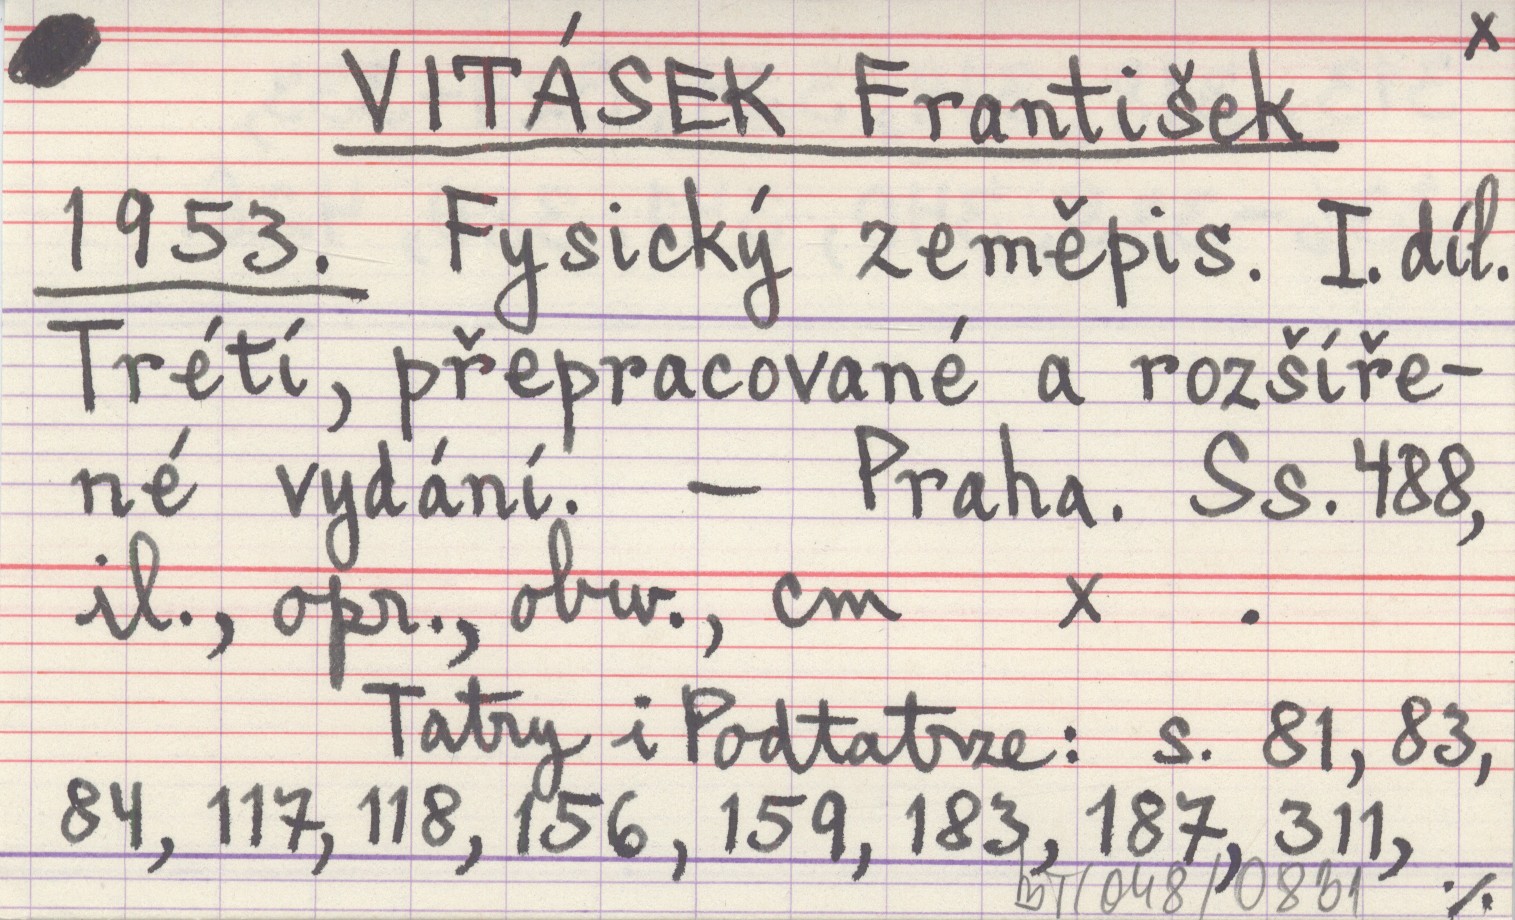 x
VITÁSEK František
1953. Fysický zeměpis. I. díl.
Trétí, přepracované a rozšíře-
né vydání. — Praha. Ss. 488,
il., opr., obw., cm x .
Tatry i Podtatrze: s. 81, 83,
84, 117, 118, 156, 159, 183, 187, 311,
BT/048/0831 ·/.